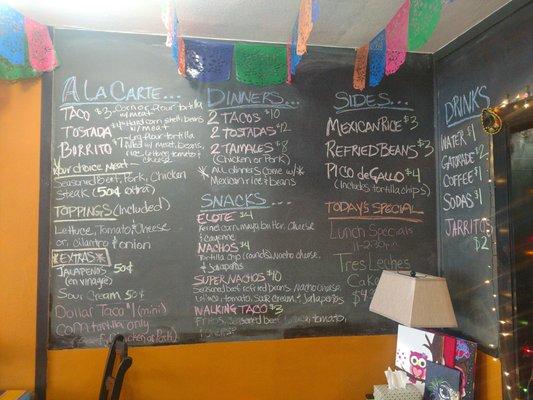 A LA CARTE...
TACO $3 - Corn or flour tortilla w/ meat
TOSTADA $4 - Hard corn shell, beans w/ meat
BURRITO $7 - Lrg. flour tortilla filled w/ meat, beans, rice, lettuce, tomato & cheese
Your choice Meat
Seasoned Beef, Pork, Chicken
Steak (50¢ extra)
TOPPINGS (included)
Lettuce, Tomato & Cheese
or cilantro & onion
*EXTRAS*
JALAPEÑOS 50¢
(en vinagre)
Sour Cream 50¢
Dollar Taco $1 (mini)
corn tortilla only
Chicken or Pork)
DINNERS...
2 TACOS $10
2 TOSTADAS $12
2 TAMALES $8
(Chicken or Pork)
*All dinners come w/*
Mexican rice & beans
SNACKS...
ELOTE $4
Kernel corn, mayo, butter, cheese
& cayenne
NACHOS $4
Tortilla chip (rounds), Nacho cheese
& Jalapeños
SUPER NACHOS $10
Seasoned beef, refried beans, Nacho cheese
Lettuce, tomato, sour cream & Jalapeños
WALKING TACO $3
Fritos, seasoned beef tomato,
SIDES...
MEXICAN RICE $3
REFRIED BEANS $3
PICO de GALLO $4
(Includes tortilla chips)
TODAY'S SPECIAL
Lunch Specials
11-2:30pm
Tres Leches
Cake
DRINKS
WATER $1
GATORADE $2
COFFEE $1
SODAS $1
JARRITO
$2